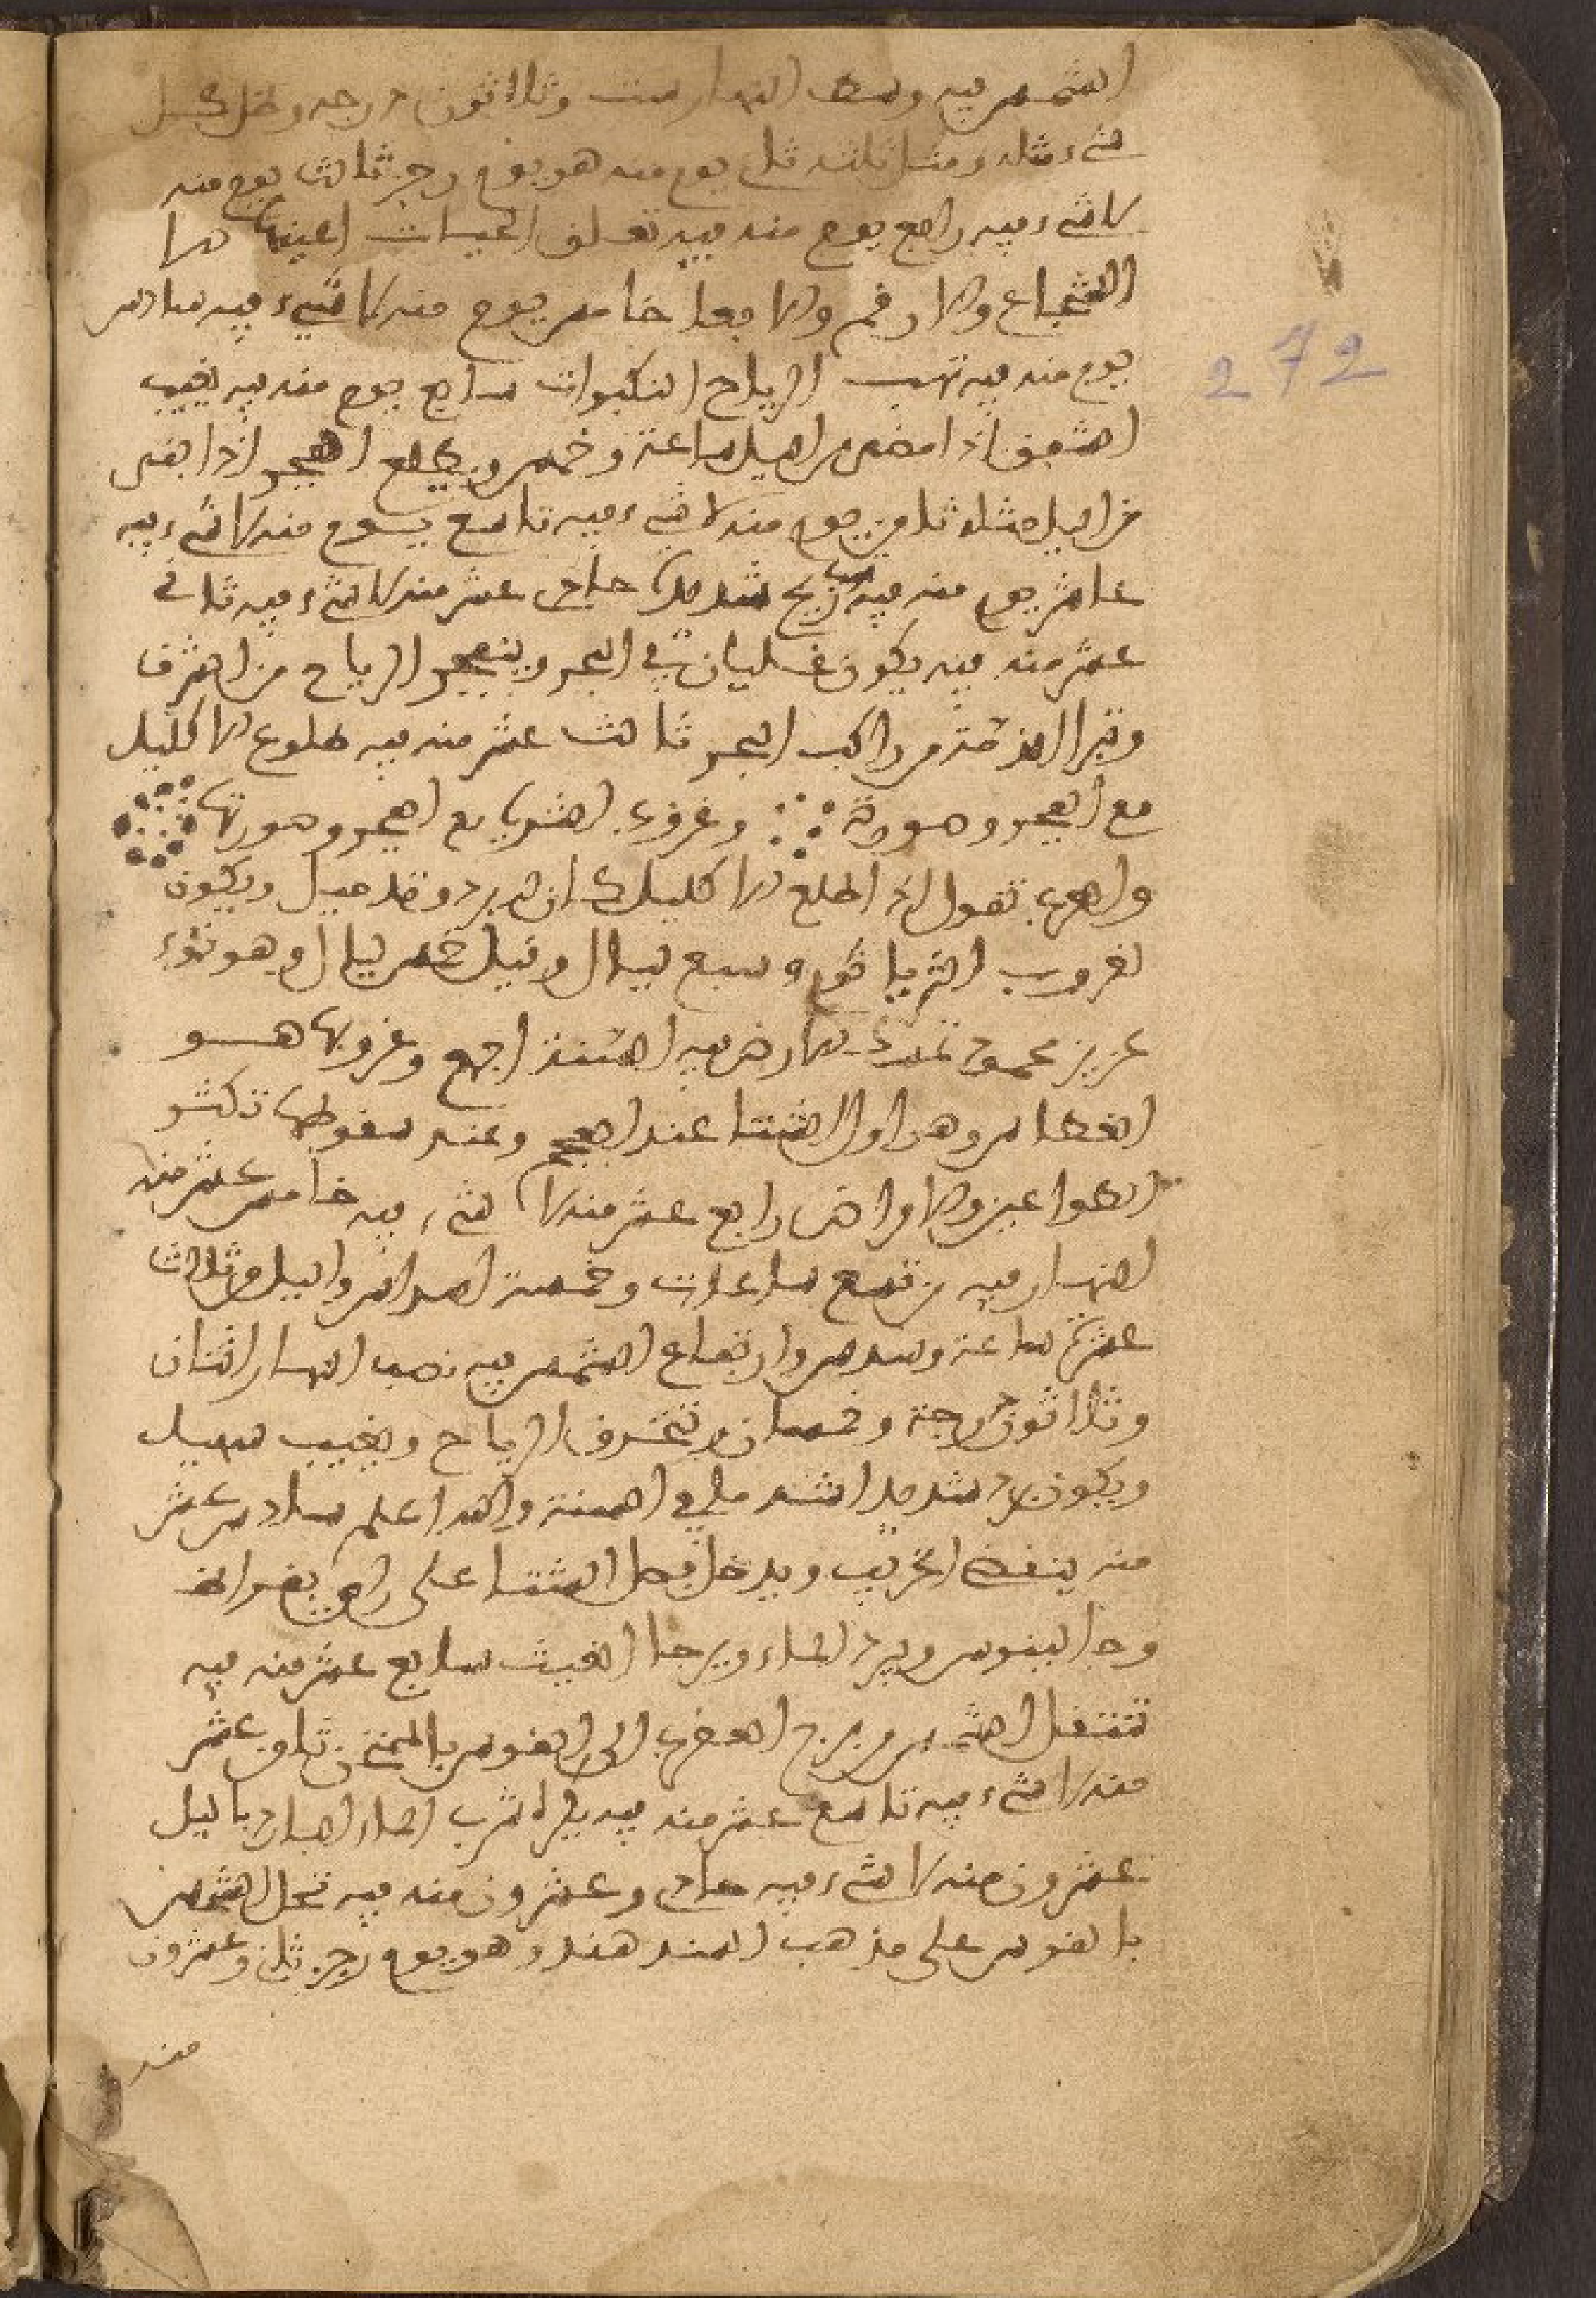 الشمس فيه وسط النهار ست وثلاثون درجه وظل كل
شيء مثله ومثل ثلثه ثاني يوم منه هو يوم رجز ثالث يوم منه
لا شيء فيه رابع يوم منه فيه تغلق الحيات اعينها الا
الشجاع والارقم والافعا خامس يوم منه لا شيء فيه سادس
يوم منه فيه تهب الرياح النكبوات سابع يوم منه فيه يغيب
الشفق اذا مضى من الليل ساعة وخمس ويطلع الفجر اذا بقى
من الليل مثله ثامن يوم منه لا شيء فيه تاسع يوم منه لا شيء فيه
عاشر يوم منه فيه تهب ريح شديدة حادى عشر منه لا شيء فيه ثاني
عشر منه فيه يكون غليان في البحر وينفجر الرياح من الشرق
وتبرا الذمة من راكب البحر ثالث عشر منه فيه طلوع الاكليل
مع الفجر وصورته وغروب الثريا مع الفجر وصورتها
والعرب تقول اذا طلع الاكليل كان البرد وقد ميل ويكون
لغروب الثريا نوء سبع ليال وقيل خمس ليال وهو نوء
عزيز محمود تمدى الارض فيه السنة اجمع وغروبها هو
الغطاس وهو اول الشتا عند العجم وعند سقوطها تكثر
الطواعين والامراض رابع عشر منه لا شيء فيه خامس عشر منه
النهار فيه من تسع ساعات وخمسة اسداس والليل من ثلاث
عشرة ساعة وسدس وارتفاع الشمس فيه نصف النهار اثنان
وثلاثون درجة وخمسان وتتحرف الرياح ويغيب سهيل
ويكون برد شديد اشد ما في السنة والله اعلم سادس عشر
منه ينقضي الخريف ويدخل فصل الشتا على راي بقراط
وجالينوس ويبرد الماء ويرجا الغيث سابع عشر منه فيه
تنتقل الشمس من برج العقرب الى القوس بالممتحن ثامن عشر
منه لا شيء فيه تاسع عشر منه فيه يكره شرب الماء البارد باليل
عشرون منه لا شيء فيه حادى وعشرون منه فيه تحل الشمس
بالقوس على مذهب السند هند وهو يوم رجز ثاني وعشرون
منه
272